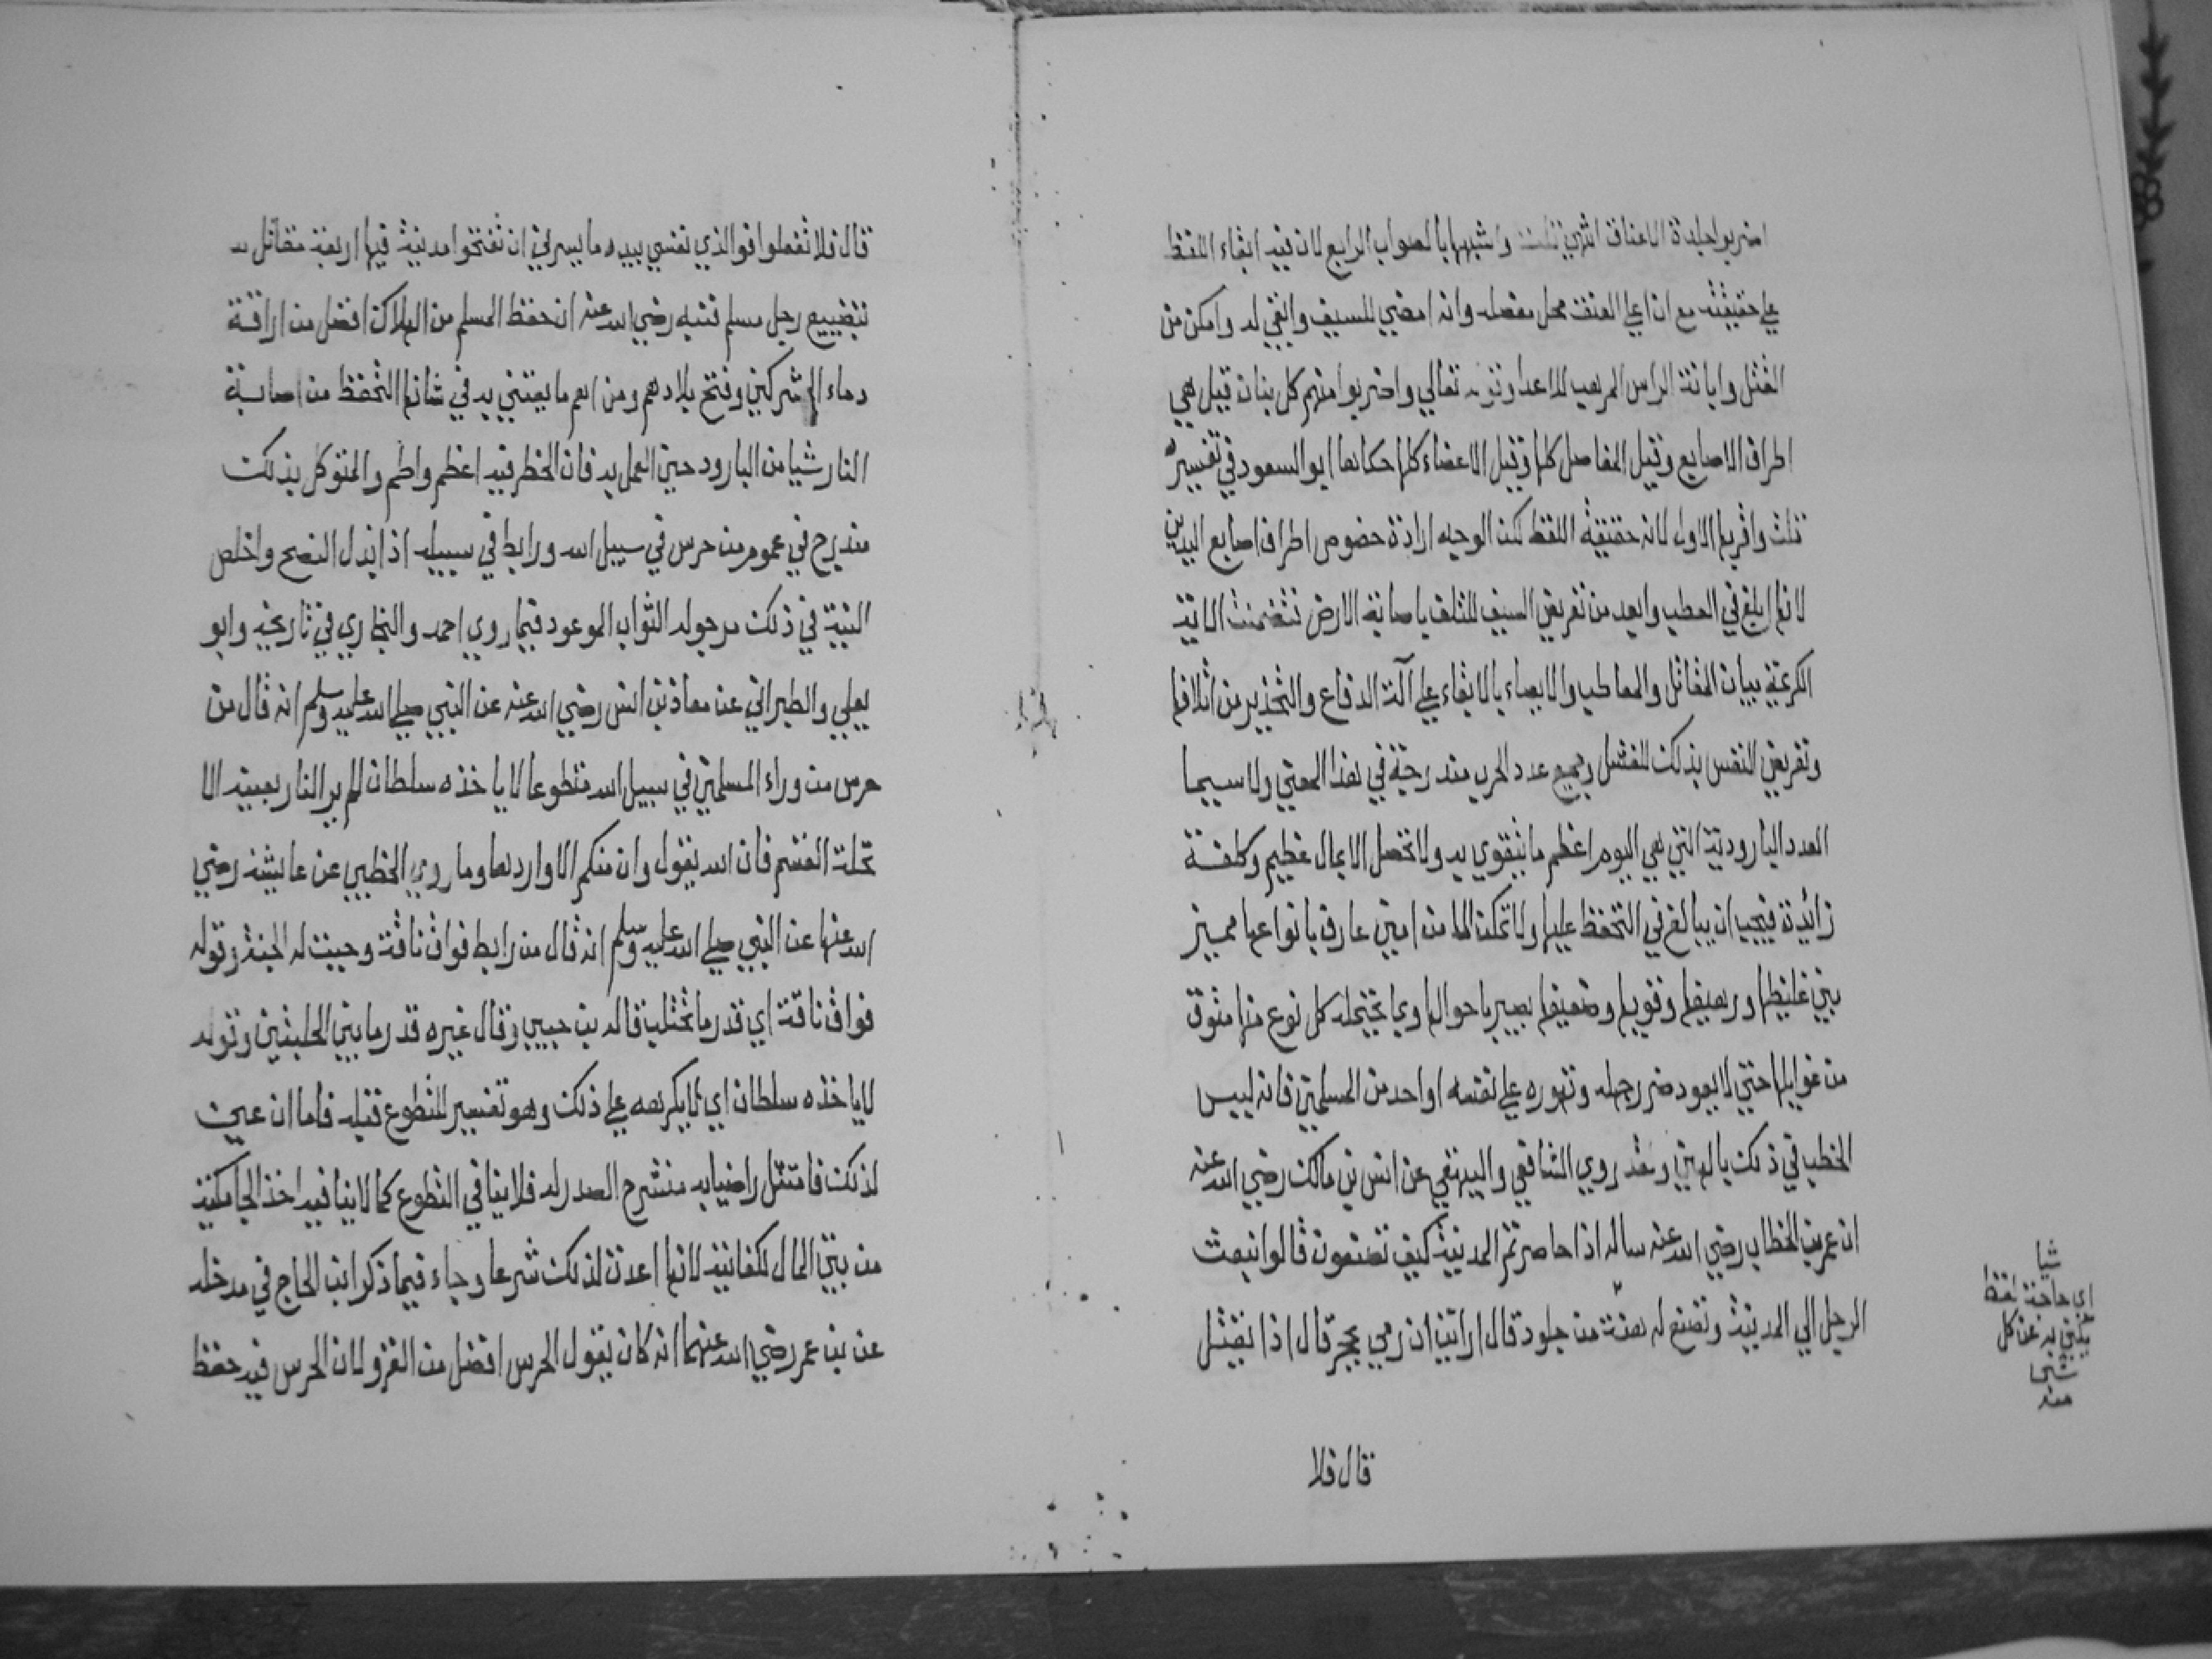 اضربوا جلدة الاعناق انتهي قلت واشبهها بالصواب الرابع لان فيه ابقاء اللفظ
علي حقيقته مع ان اعلي العنق محل مفصله وانه امضي للسيف وانقي له وامكن من
القتل وابانة الراس المرهب للاعدا وقوله تعالي واضربوا منهم كل بنان قيل هي
اطراف الاصابع وقيل المفاصل كلها وقيل الاعضاء كلها حكاها ابو السعود في تفسيره
قلت واقربها الاول لانه حقيقة اللفظ لكن الوجيه ارادة خصوص اطراف اصابع اليدين
لانها ابلغ في العطب وابعد من تعريض السيف للتلف باصابة الارض فتضمنت الاية
الكريمة بيان المقاتل والمعاطب والايصاء بالابقاء علي آلة الدفاع والتحذير من اتلافها
وتعريض النفس بذلك للفشل وجميع عدد الحرب مندرجة في هذا المعني ولاسيما
العدد البارودية التي هي اليوم اعظم ما يتقوي به ولا تحصل الا بمال عظيم وكلفة
زائدة فيجب ان يبالغ في التحفظ عليها ولا تمكن الا من امين عارف بانواعها مميز
بين غليظها ورهيفها وقويها وضعيفها بصير باحوالها وبما يحتمله كل نوع منها متوق
من غوايلها حتي لا يعود ضرر جهله وتهوره علي نفسه او احد من المسلمين فانه ليس
الخطب في ذلك بالهين وقد روي الشافعي والبيهقي عن انس بن مالك رضي الله عنه
ان عمر بن الخطاب رضي الله عنه ساله اذا حاصرتم المدينة كيف تصنعون قالوا نبعث
الرجل الي المدينة ونصنع له هنة من جلود قال ارايت ان رمي بحجر قال اذا يقتل
شيا
اي حاجة لفظ
يكني به عن كل
شي
منه
قال فلا
قال فلا تفعلوا فوالذي نفسي بيده ما يسرني ان تفتحوا مدينة فيها اربعة مقاتل
بتضييع رجل مسلم فنبه رضي الله عنه ان حفظ المسلم من الهلاك افضل من اراقة
دماء المشركين وفتح بلادهم ومن اهم ما يعتني به في شانها التحفظ من اصابة
النار شيا من البارود حين العمل به فان الخطر فيه اعظم واطم والمتوكل بذلك
مندرج في عموم من حرس في سبيل الله ورابط في سبيله اذا بذل النصح واخلص
النية في ذلك مرجو له الثواب الموعود فيما روي احمد والبخاري في تاريخه وابو
يعلي والطبراني عن معاذ بن انس رضي الله عنه عن النبي صلي الله عليه وسلم انه قال من
حرس من وراء المسلمين في سبيل الله متطوعا لا ياخذه سلطان لم ير النار بعينه الا
تحلة القسم فان الله يقول وان منكم الا واردها وما روي الخطيب عن عايشة رضي
الله عنها عن النبي صلي الله عليه وسلم انه قال من رابط فواق ناقة وجبت له الجنة وقوله
فواق ناقة اي قدر ما تحتلب قاله بن حبيب وقال غيره قدر ما بين الحلبتين وقوله
لا ياخذه سلطان اي لا يكرهه علي ذلك وهو تفسير للتطوع قبله فاما ان عين
لذلك فامتثل راضيا به منشرح الصدر له فلا ينافي التطوع كما لا ينافيه اخذ الجامكية
من بيت المال لكفايته لانها اعدت لذلك شرعا وجاء فيما ذكر ابن الحاج في مدخله
عن بن عمر رضي الله عنهما انه كان يقول الحرس افضل من الغزو لان الحرس فيه حفظ